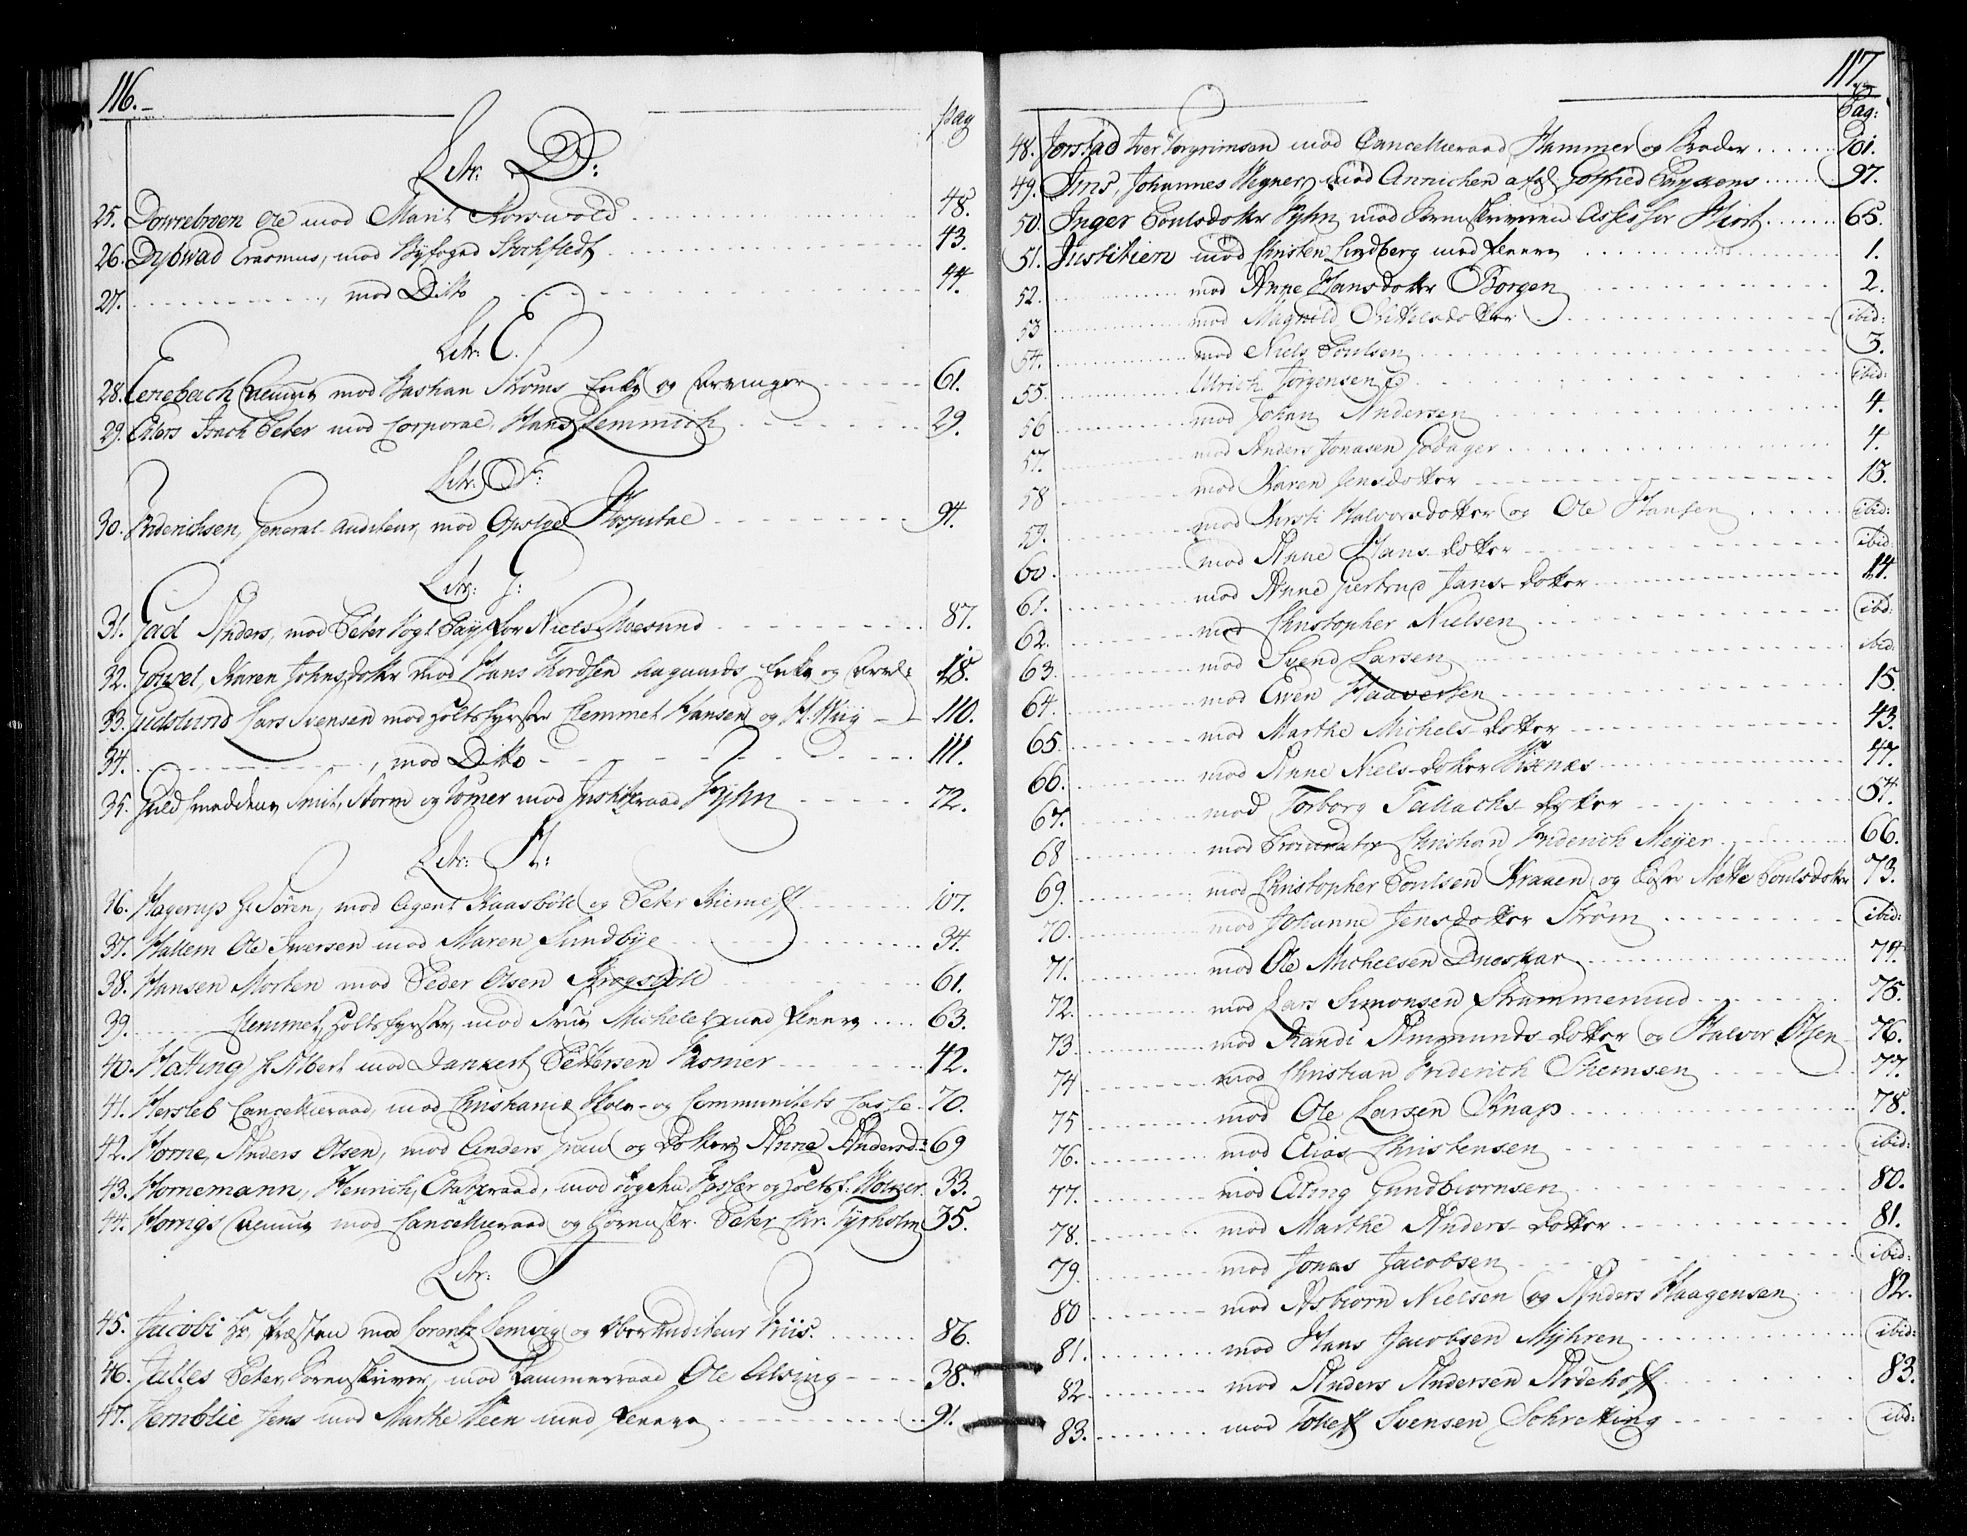 116.
pag
Litr. D:
25. Dowrebroen Ole mod Marit Korswold 48.
26. Dybwad Erasmus, mod Byfoged Stockfledt 43.
27. , mod Ditto 44.
Litr: E.
28. mod Bastian Strøms Enke og Arvinger 61.
29. Eilers Isach Peter mod Corporal Hans Lemmich 29.
Litr. F:
30. Friderichsen, General-Auditeur, mod Opsloe Hospital 94.
Litr: G:
31. Gad Anders, mod Peter Vogt for Niels Moesund 87.
32. Karen Johnsdotter mod Hans Thordsen Aagaards Enke og 18.
33. Gudslund Lars Svensen mod Holtsfyrster Clemmet Hansen og H. Wiig 110.
34. , mod Ditto 111.
35. Guldsmeddene Smit, Storm og Tomer mod Justitzraad Hyhn 72.
Litr: H:
36. Hagerup Hr Søren, mod Agent Kaasbøll og Peter Kiemeff 107.
37. Hallem Ole Iversen mod Maren Sundbye 34.
38. Hansen Morten mod Peder Olsen Krogsbøll 61.
39. Clemmet, Holtsfyrster, mod Michelet med flere 63.
40. Hatting Hr Albert mod Danckert Pettersen Fasmer 42.
41. Hersleb Cancellieraad, mod Christianiæ Skole- og Communitets Casse 70.
42. Horne, Anders Olsen, mod Anders og Dotter Anne Andersd: 69
43. Hornemann, Henrich, Etatzraad, mod og Holtsf: Wolner 33.
44. Hornigs mod Cancellieraad og Sorenskr. Peter Chr. Tyrholm 35.
Litr: I
45. Jacobi Hr Præsten mod Lorentz Lemvig og OberAuditeur Friis. 86.
46. Jelles Peter, Sorenskriver, mod Kammerraad Ole Alsing 38.
47. Jernblie Jens mod Marthe Veen med flere 91.
117.
Pag:
48. Jorstad Iver Torgrimsen mod Cancellieraad Hammer og Rader 101.
49. Jrns, Johannes Wegner, mod Annichen afg. Gotfried 97.
50. Inger Poulsdotter Hyhn mod Sorenskriveren Assessor Hiort 65.
51. Justitien mod Christen Lindberg med flere 1.
52. mod Anne Hansdotter Borgen 2.
53 mod Magnild Kittelsdotter ibid:
54. mod Niels Poulsen 3.
55. Ulrich Jørgensen ibid:
56 mod Johan Andersen 4.
57. mod Anders Jonasen Godager 4.
58 mod Karen Jensdotter 13.
59. mod Kirsti Halvorsdotter og Ole Hansen ibid:
60. mod Anne Hans-dotter ibid:
61. mod Anne Giertrud Jans-dotter 14.
62. mod Christopher Nielsen ibd:
63. mod Svend Larsen ibid:
64. mod Even Haaversen 15.
65. mod Marthe Michels-dotter 43.
66. mod Anne Niels-dotter Vixnæs 47.
67. mod Torborg Tallachs-dotter 57.
68 mod Procurator Christian Friderich Meyer 66.
69. mod Christopher Poulsen Kraaen og Mette Poulsdotter 73.
70. mod Johanne Jensdotter Strøm ibid:
71. mod Ole Michelsen Dueskar 74.
72. mod Lars Simonsen Strammerud 75.
73. mod Randi Ammunds-dotter og Halvor Olsen 76.
74 mod Christian Friderich Themsen 77.
75 mod Ole Larsen Knap 78.
76. mod Elias Christensen ibid:
77. mod Elling Gundbiørnsen 80.
78. mod Marthe Anders-dotter 81.
79. mod Jonas Jacobsen ibid:
80 mod Asbiørn Nielsen og Anders Haagensen 82.
81. mod Hans Jacobsen Myhren ibid:
82. mod Anders Andersen Arøehoff 83.
83. mod Tolleff Svensen Sohretting ibd: